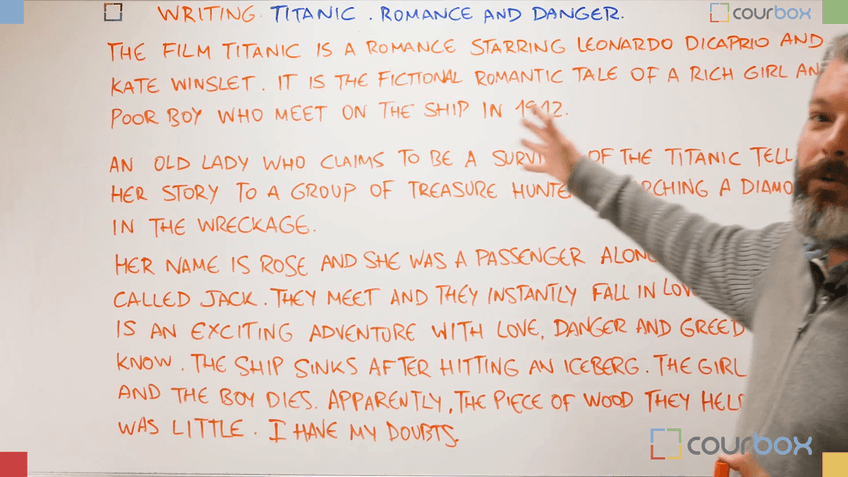 WRITING. TITANIC. ROMANCE AND DANGER.
courbox
THE FILM TITANIC IS A ROMANCE STARRING LEONARDO DICAPRIO AND
KATE WINSLET. IT IS THE FICTIONAL ROMANTIC TALE OF A RICH GIRL
POOR BOY WHO MEET ON THE SHIP IN 1912.
AN OLD LADY WHO CLAIMS TO BE A OF THE TITANIC
HER STORY TO A GROUP OF TREASURE A
IN THE WRECKAGE.
HER NAME IS ROSE AND SHE WAS A PASSENGER
CALLED JACK. THEY MEET AND THEY INSTANTLY FALL IN
IS AN EXCITING ADVENTURE WITH LOVE, DANGER AND GREED
KNOW. THE SHIP SINKS AFTER HITTING AN ICEBERG. THE GIRL
AND THE BOY DIES. APPARENTLY, THE PIECE OF WOOD THEY
WAS LITTLE. I HAVE MY DOUBTS.
courbox